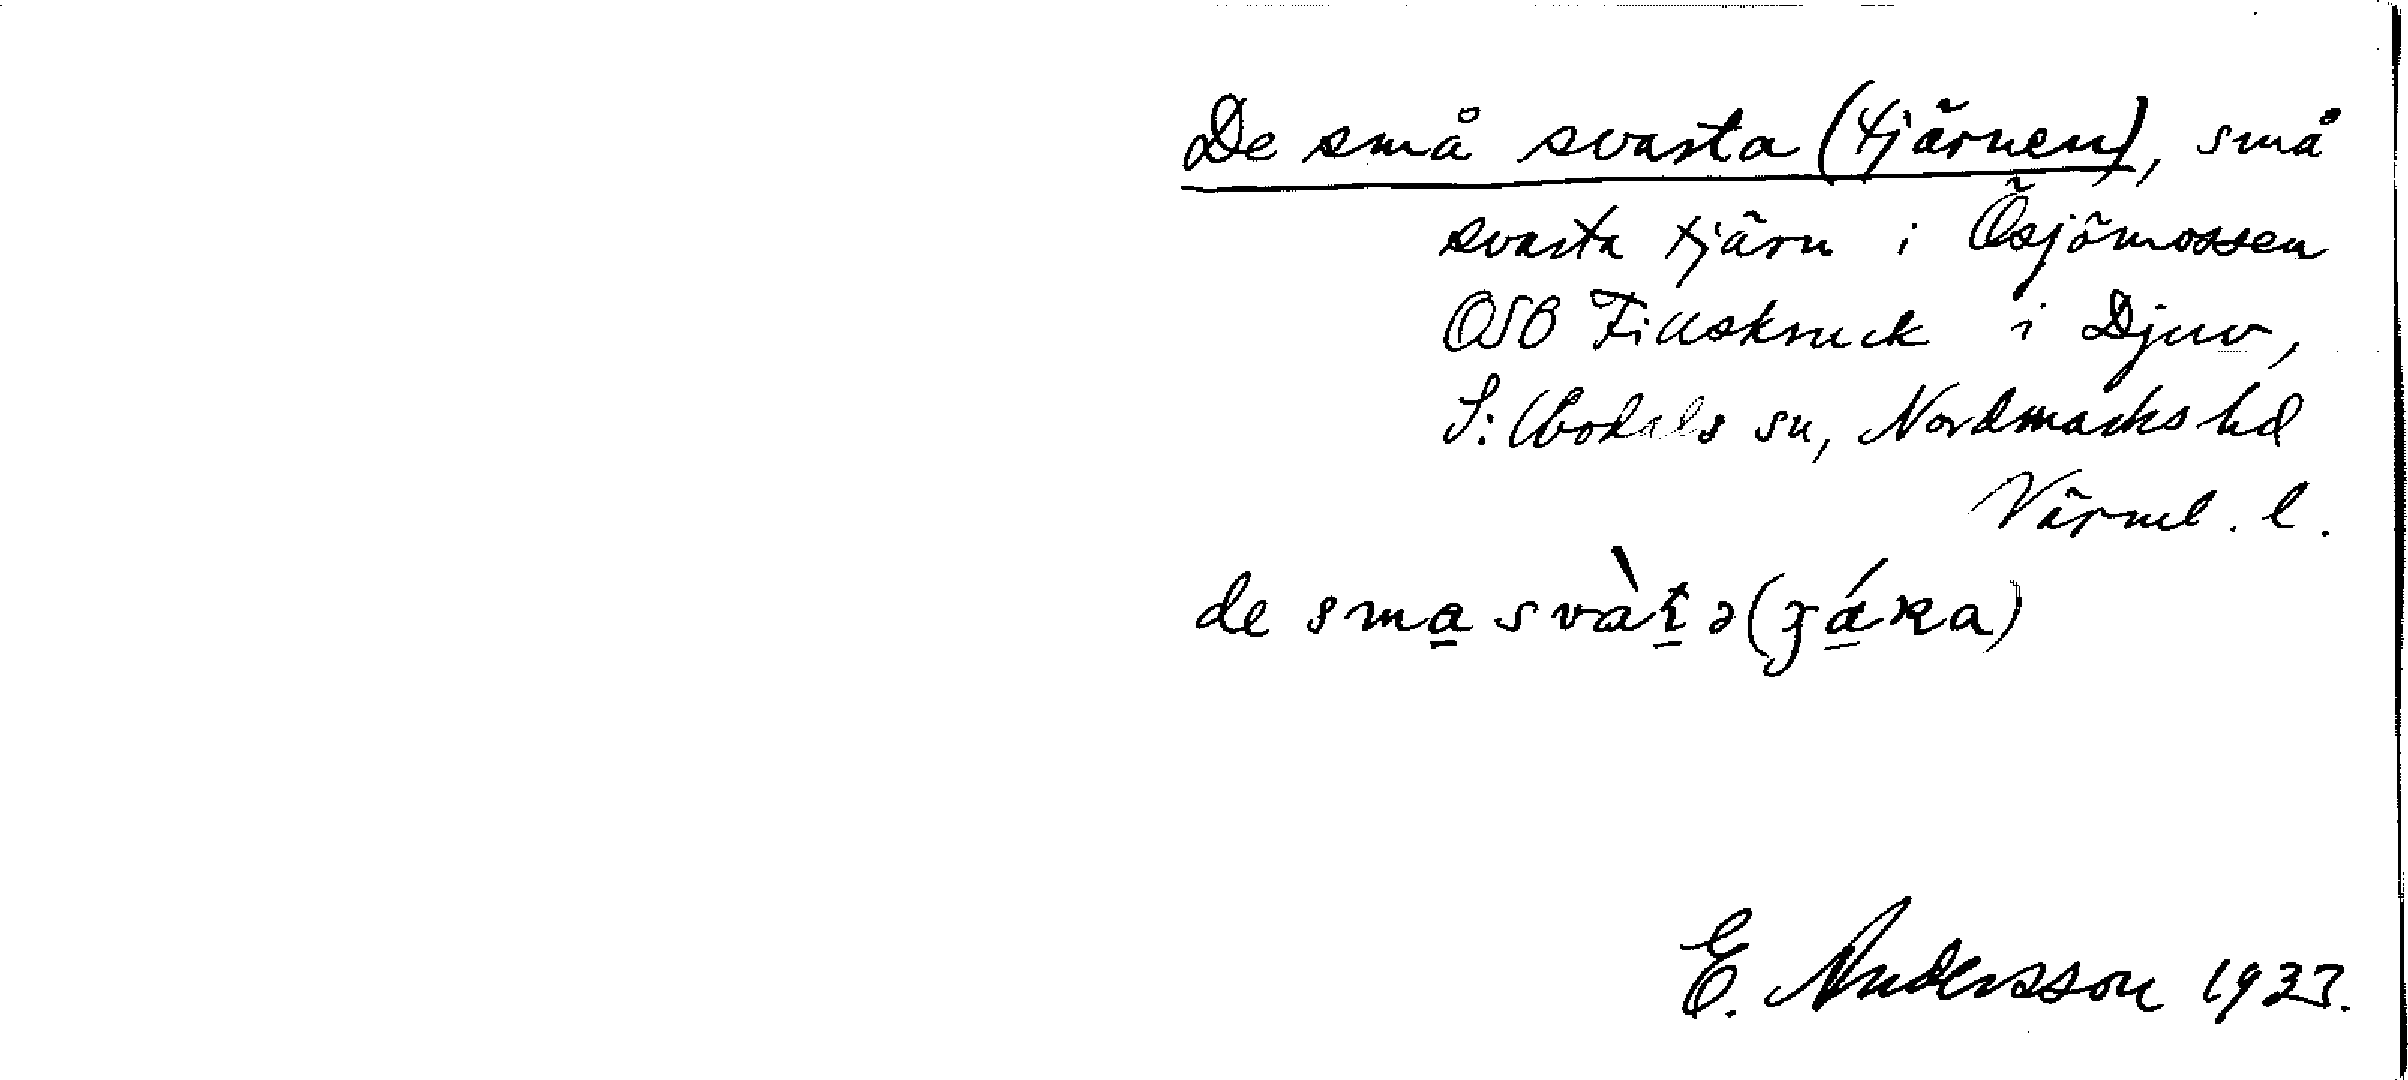 De små svarta (tjärnen), små
svarta tjärn i Ösjömossen
OSO Fillskruck i Djuv,
S: Ny sn, Nordmarks hd
Värml. l.
de sma svàt̠ə (
E. Andersson 1933.